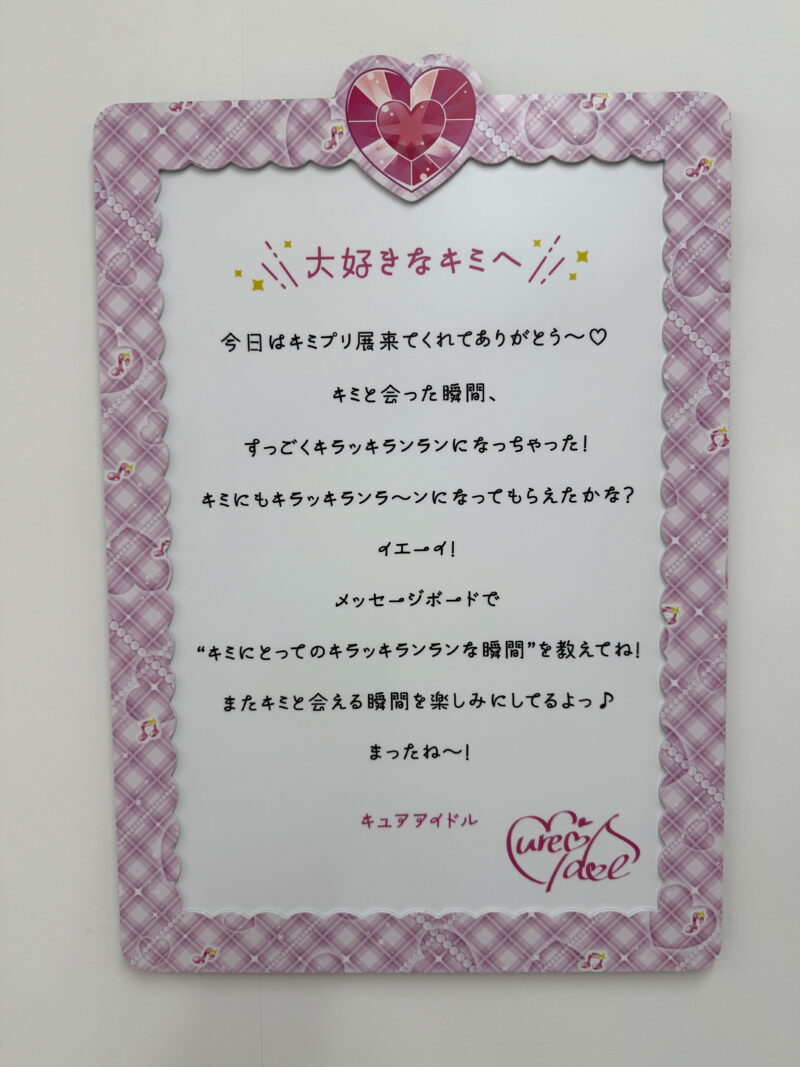 大好きなキミへ
今日はキミプリ展来てくれてありがとう〜♡
キミと会った瞬間、
すっごくキラッキランランになっちゃった！
キミにもキラッキランラ〜ンになってもらえたかな？
イエーイ！
メッセージボードで
“キミにとってのキラッキランランな瞬間”を教えてね！
またキミと会える瞬間を楽しみにしてるよっ♪
まったね〜！
キュアアイドル
Cure Idol